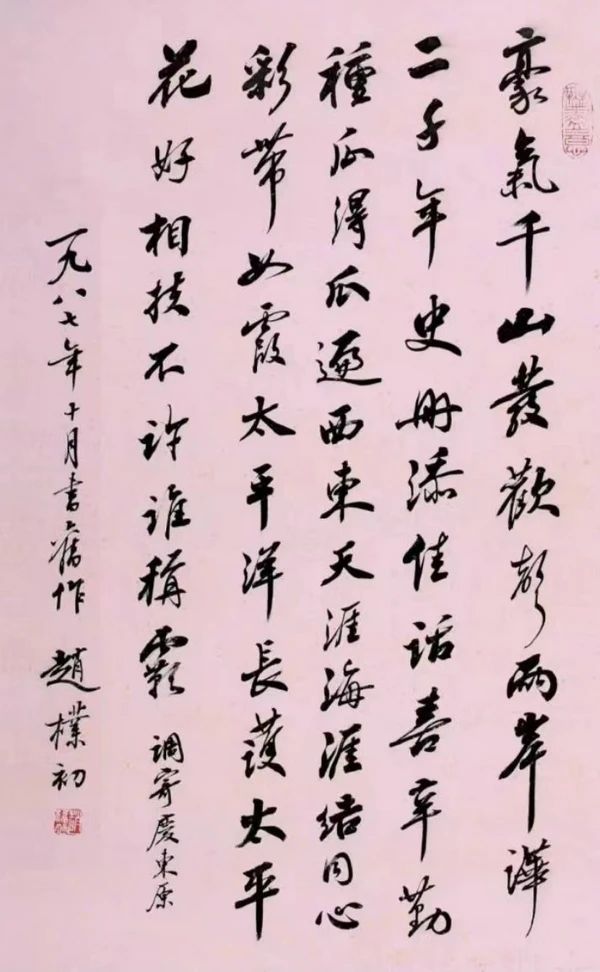 豪氣千山發歡聲兩岸譁
二千年史册添佳話喜辛勤
種瓜得瓜遍西東天涯海涯結同心
彩帶如霞太平洋長護太平
花好相扶不許誰稱霸 調寄慶東原
一九八七年十月書舊作 趙樸初